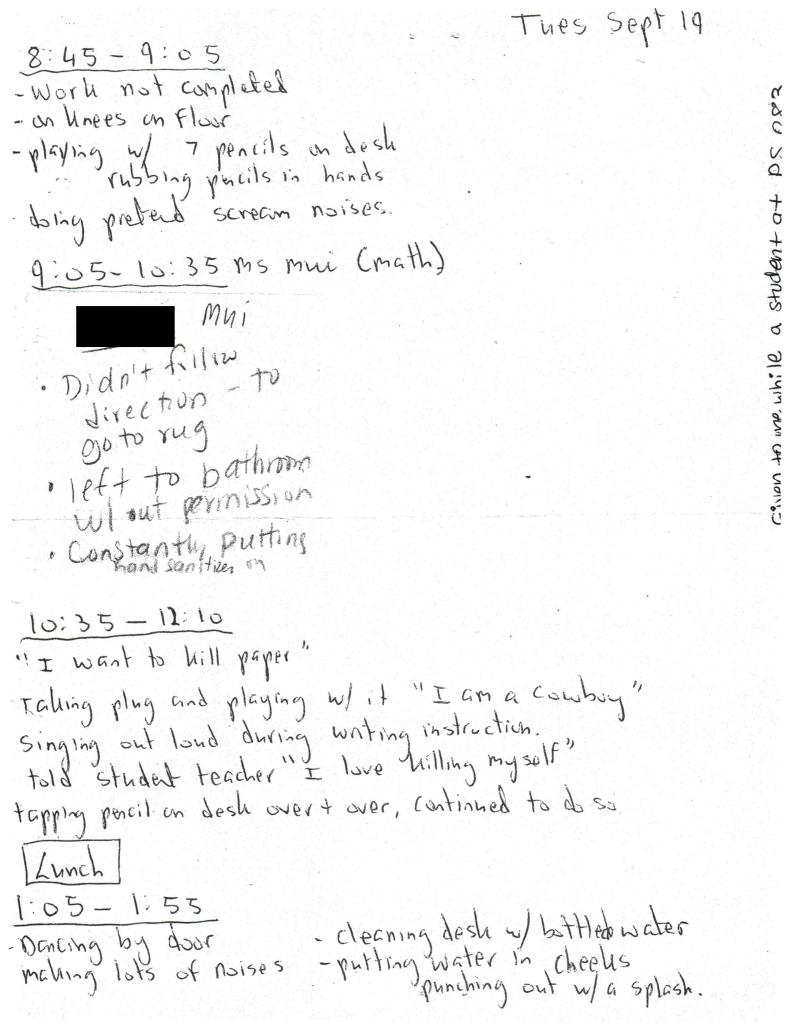 Tues Sept 19
8:45 - 9:05
- Work not completed
- on knees on floor
- playing w/ 7 pencils on desk
rubbing pencils in hands
- doing pretend scream noises.
9:05 - 10:35 ms mui (math)
mui
• Didn't follow
direction - to
go to rug
• left to bathroom
w/out permission
• Constantly putting
hand sanitizer on
10:35 - 12:10
"I want to kill paper"
Taking plug and playing w/ it "I am a cowboy"
Singing out loud during writing instruction.
told student teacher "I love killing myself"
tapping pencil on desk over + over, continued to do so
Lunch
1:05 - 1:55
- Dancing by door
making lots of noises
- cleaning desk w/ bottled water
- putting water in cheeks
punching out w/ a splash.
Given to me while a student at PS 083